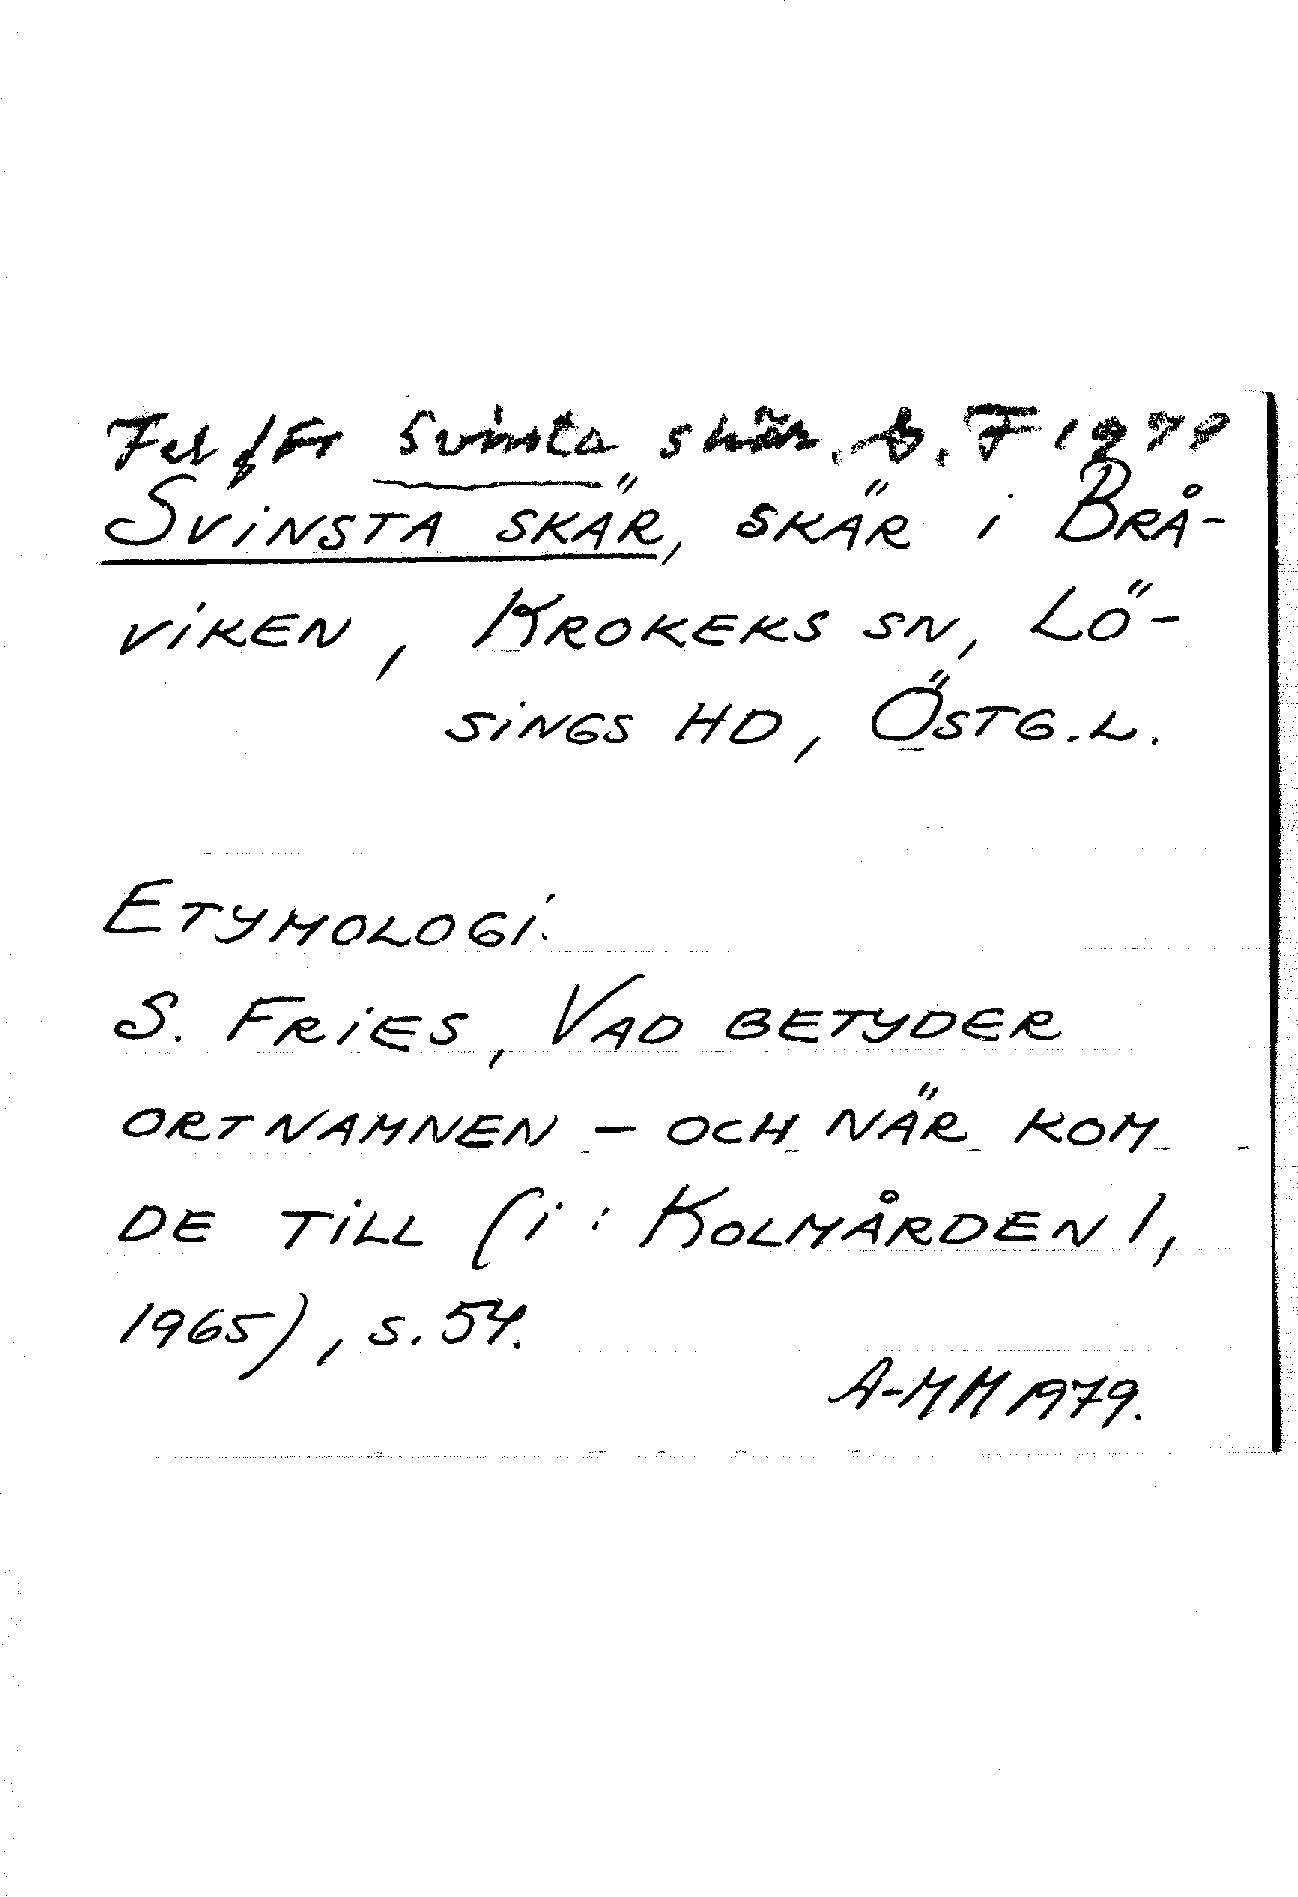 Fel för Svinsta skär. S. F 1979
SVINSTA SKÄR, SKÄR i BRÅ-
VIKEN, KROKEKS SN, LÖ-
SINGS HD, ÖSTG.L.
ETYMOLOGI:
S. FRIES, VAD BETYDER
ORTNAMNEN – OCH NÄR KOM
DE TILL (i: KOLMÅRDEN 1,
1965), S. 54.
A-MM 1979.